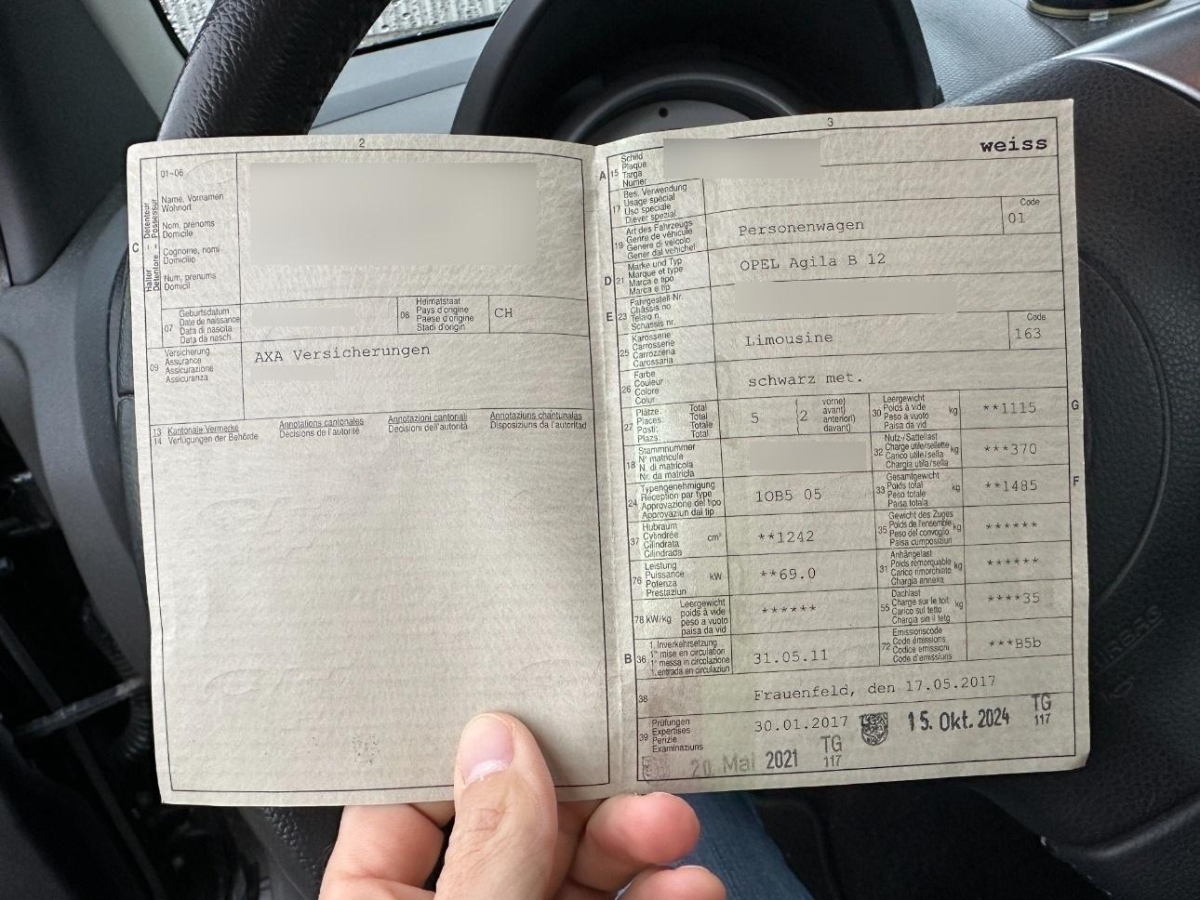 2
01-06
Name, Vornamen
Wohnort
Nom, prenoms
Domicile
Cognome, nomi
Domicilio
Num, prenums
Domicil
C
Halter – Détenteur
Detentore – Possessur
07
Geburtsdatum
Date de naissance
Data di nascita
Data da nasch.
08
Heimatstaat
Pays d'origine
Paese d'origine
Stadi d'origin
CH
09
Versicherung
Assurance
Assicurazione
Assicuranza
AXA Versicherungen
13 Kantonale Vermerke
14 Verfügungen der Behörde
Annotations cantonales
Décisions de l'autorité
Annotazioni cantonali
Decisioni dell'autorità
Annotaziuns chantunalas
Disposiziuns da l'autoritad
3
A 15
Schild
Plaque
Targa
Numer
weiss
17
Bes. Verwendung
Usage spécial
Uso speciale
Diever spezial
19
Art des Fahrzeugs
Genre de véhicule
Genere di veicolo
Gener dal vehichel
Personenwagen
Code
01
D 21
Marke und Typ
Marque et type
Marca e tipo
Marca e tip
OPEL Agila B 12
E 23
Fahrgestell Nr.
Châssis no
Telaio n.
Schassis nr.
25
Karosserie
Carrosserie
Carrozzeria
Carossaria
Limousine
Code
163
26
Farbe
Couleur
Colore
Colur
schwarz met.
27
Plätze: Total
Places: Total
Posti: Totale
Plazs: Total
5
(2
vorne)
avant)
anteriori)
davant)
30
Leergewicht
Poids à vide
Peso a vuoto
Paisa da vid
kg
**1115
G
18
Stammnummer
N° matricule
N. di matricola
Nr. da matricla
32
Nutz-/Sattellast
Charge utile/sellette
Carico utile/sella
Chargia utila/sella
kg
***370
24
Typengenehmigung
Réception par type
Approvazione del tipo
Approvaziun dal tip
1OB5 05
33
Gesamtgewicht
Poids total
Peso totale
Paisa totala
kg
**1485
F
37
Hubraum
Cylindrée
Cilindrata
Cilindrada
cm³
**1242
35
Gewicht des Zuges
Poids de l'ensemble
Peso del convoglio
Paisa cumposiziun
kg
******
76
Leistung
Puissance
Potenza
Prestaziun
kW
**69.0
31
Anhängelast
Poids remorquable
Carico rimorchiato
Chargia annexa
kg
******
78 kW/kg
Leergewicht
poids à vide
peso a vuoto
paisa da vid
******
55
Dachlast
Charge sur le toit
Carico sul tetto
Chargia sin il tetg
kg
****35
B 36
1. Inverkehrsetzung
1re mise en circulation
1a messa in circolazione
1. entrada en circulaziun
31.05.11
72
Emissionscode
Code émissions
Codice emissioni
Code d'emissiuns
***B5b
38
Frauenfeld, den 17.05.2017
39
Prüfungen
Expertises
Perizie
Examinaziuns
30.01.2017
15. Okt. 2024
TG
117
20. Mai 2021
TG
117